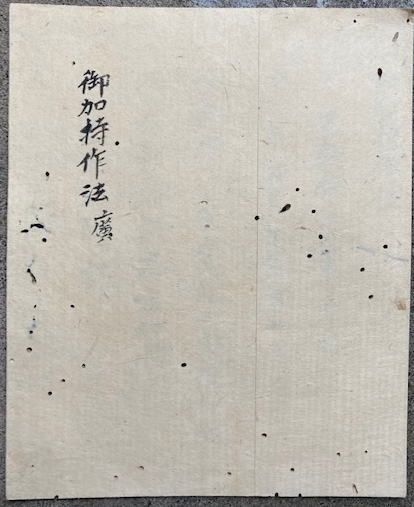 御加持作法 廣